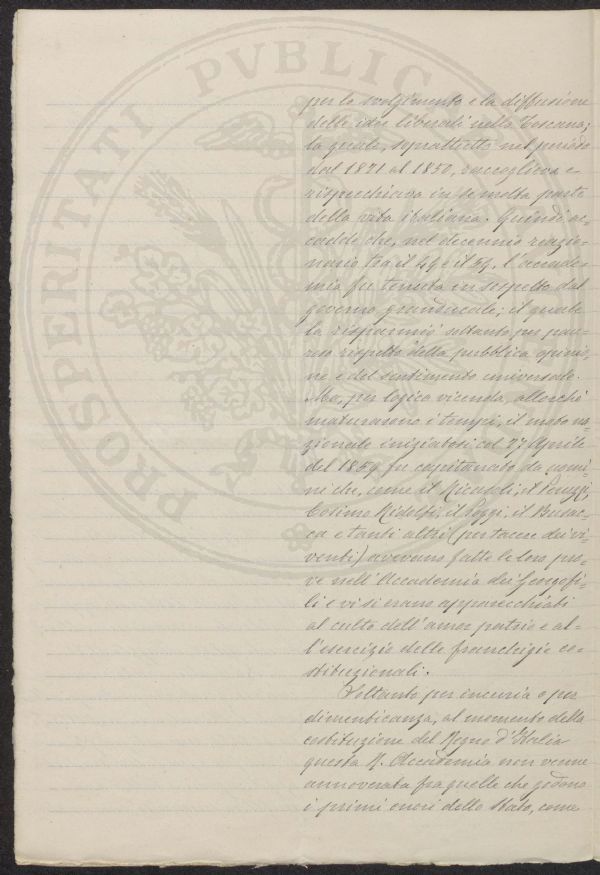 PROSPERITATI PVBLIC
per lo svolgimento e la diffusione
delle idee liberali nella Toscana;
la quale, soprattutto nel periodo
dal 1821 al 1850, raccoglieva e
rispecchiava in se molta parte
della vita italiana. Quindi ac=
cadde che, nel decennio reazio=
nario tra il 49 e il 59, l'accade=
mia fu tenuta in sospetto dal
governo granducale; il quale
la risparmiò soltanto per pau=
roso rispetto della pubblica opinio=
ne e del sentimento universale.
Ma, per logica vicenda, allorchè
maturarono i tempi, il moto na=
zionale iniziatosi col 27 Aprile
del 1859 fu capitanato da uomi=
ni che, come il Ricasoli, il Peruzzi,
Cosimo Ridolfi, il Poggi, il Busac=
ca e tanti altri (per tacere dei vi=
venti) avevano fatte le loro pro=
ve nell'Accademia dei Georgofi=
li e vi si erano apparecchiati
al culto dell'amor patrio e al=
l'esercizio delle franchigie co=
stituzionali.
Soltanto per incuria o per
dimenticanza, al momento della
costituzione del Regno d'Italia
questa R. Accademia non venne
annoverata fra quelle che godono
i primi onori dello Stato, come